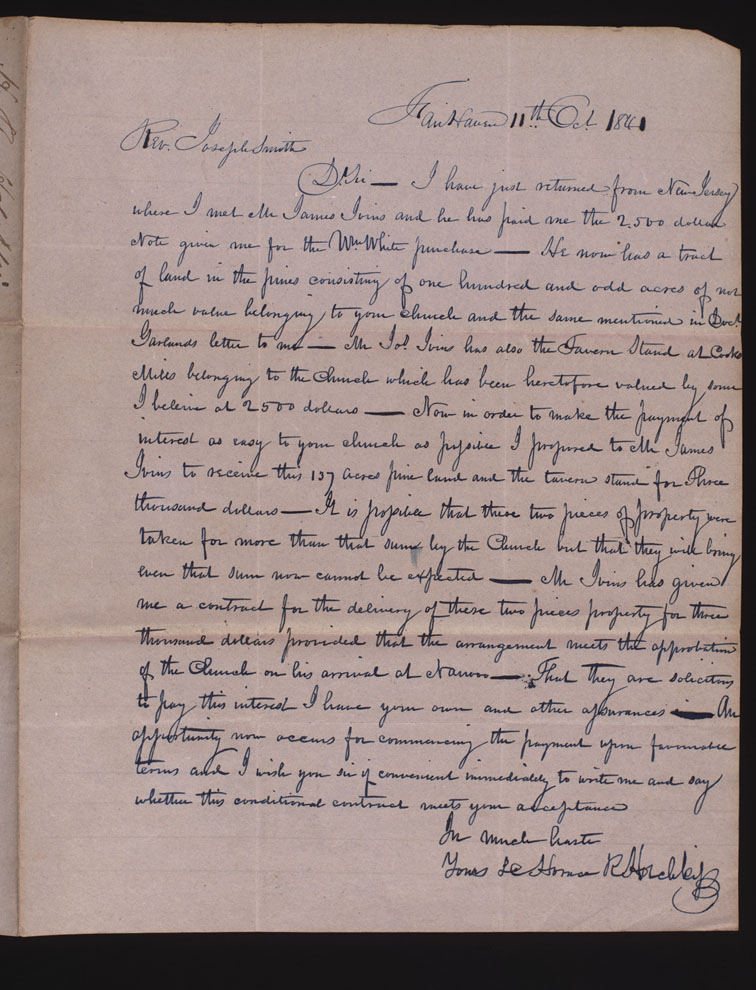 Fair Haven 11th. Oct. 1841
Rev. Joseph Smith
Dr Sir — I have just returned from New Jersey
where I met Mr James Ivins and he has paid me the 2.500 dollar
Note given me for the Wm White purchase — He now has a tract
of land in the pines consisting of one hundred and odd acres of not
much value belonging to your church and the same mentioned in Doct.
Garlands letter to me — Mr Jas. Ivins has also the Tavern Stand at Cooks
Mills belonging to the Church which has been heretofore valued by some
I believe at 2500 dollars — Now in order to make the payment of
interest as easy to your church as possible I proposed to Mr James
Ivins to receive this 137 acres pine land and the tavern stand for Three
thousand dollars — It is possible that these two pieces of property were
taken for more than that sum by the Church but that they will bring
even that sum now cannot be expected — Mr Ivins has given
me a contract for the delivery of these two pieces property for three
thousand dollars provided that the arrangement meets the approbation
of the Church on his arrival at Nauvoo — That they are solicitous
to pay this interest I have your own and other assurances — An
opportunity now occurs for commencing the payment upon favourable
terms and I wish you sir if convenient immediately to write me and say
whether this conditional contract meets your acceptance
In much haste
Yours &c Horace R Hotchkiss